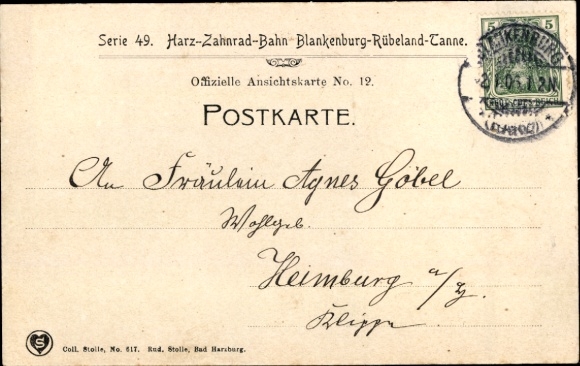 Serie 49. Harz-Zahnrad-Bahn Blankenburg-Rübeland-Tanne.
5 5
BLANKENBURG
(HARZ)
Offizielle Ansichtskarte No. 12.
POSTKARTE.
An Fräulein Agnes Göbel
Wohlgeb.
Heimburg a/H.
Klippe
S
Coll. Stolle, No. 617. Rud. Stolle, Bad Harzburg.